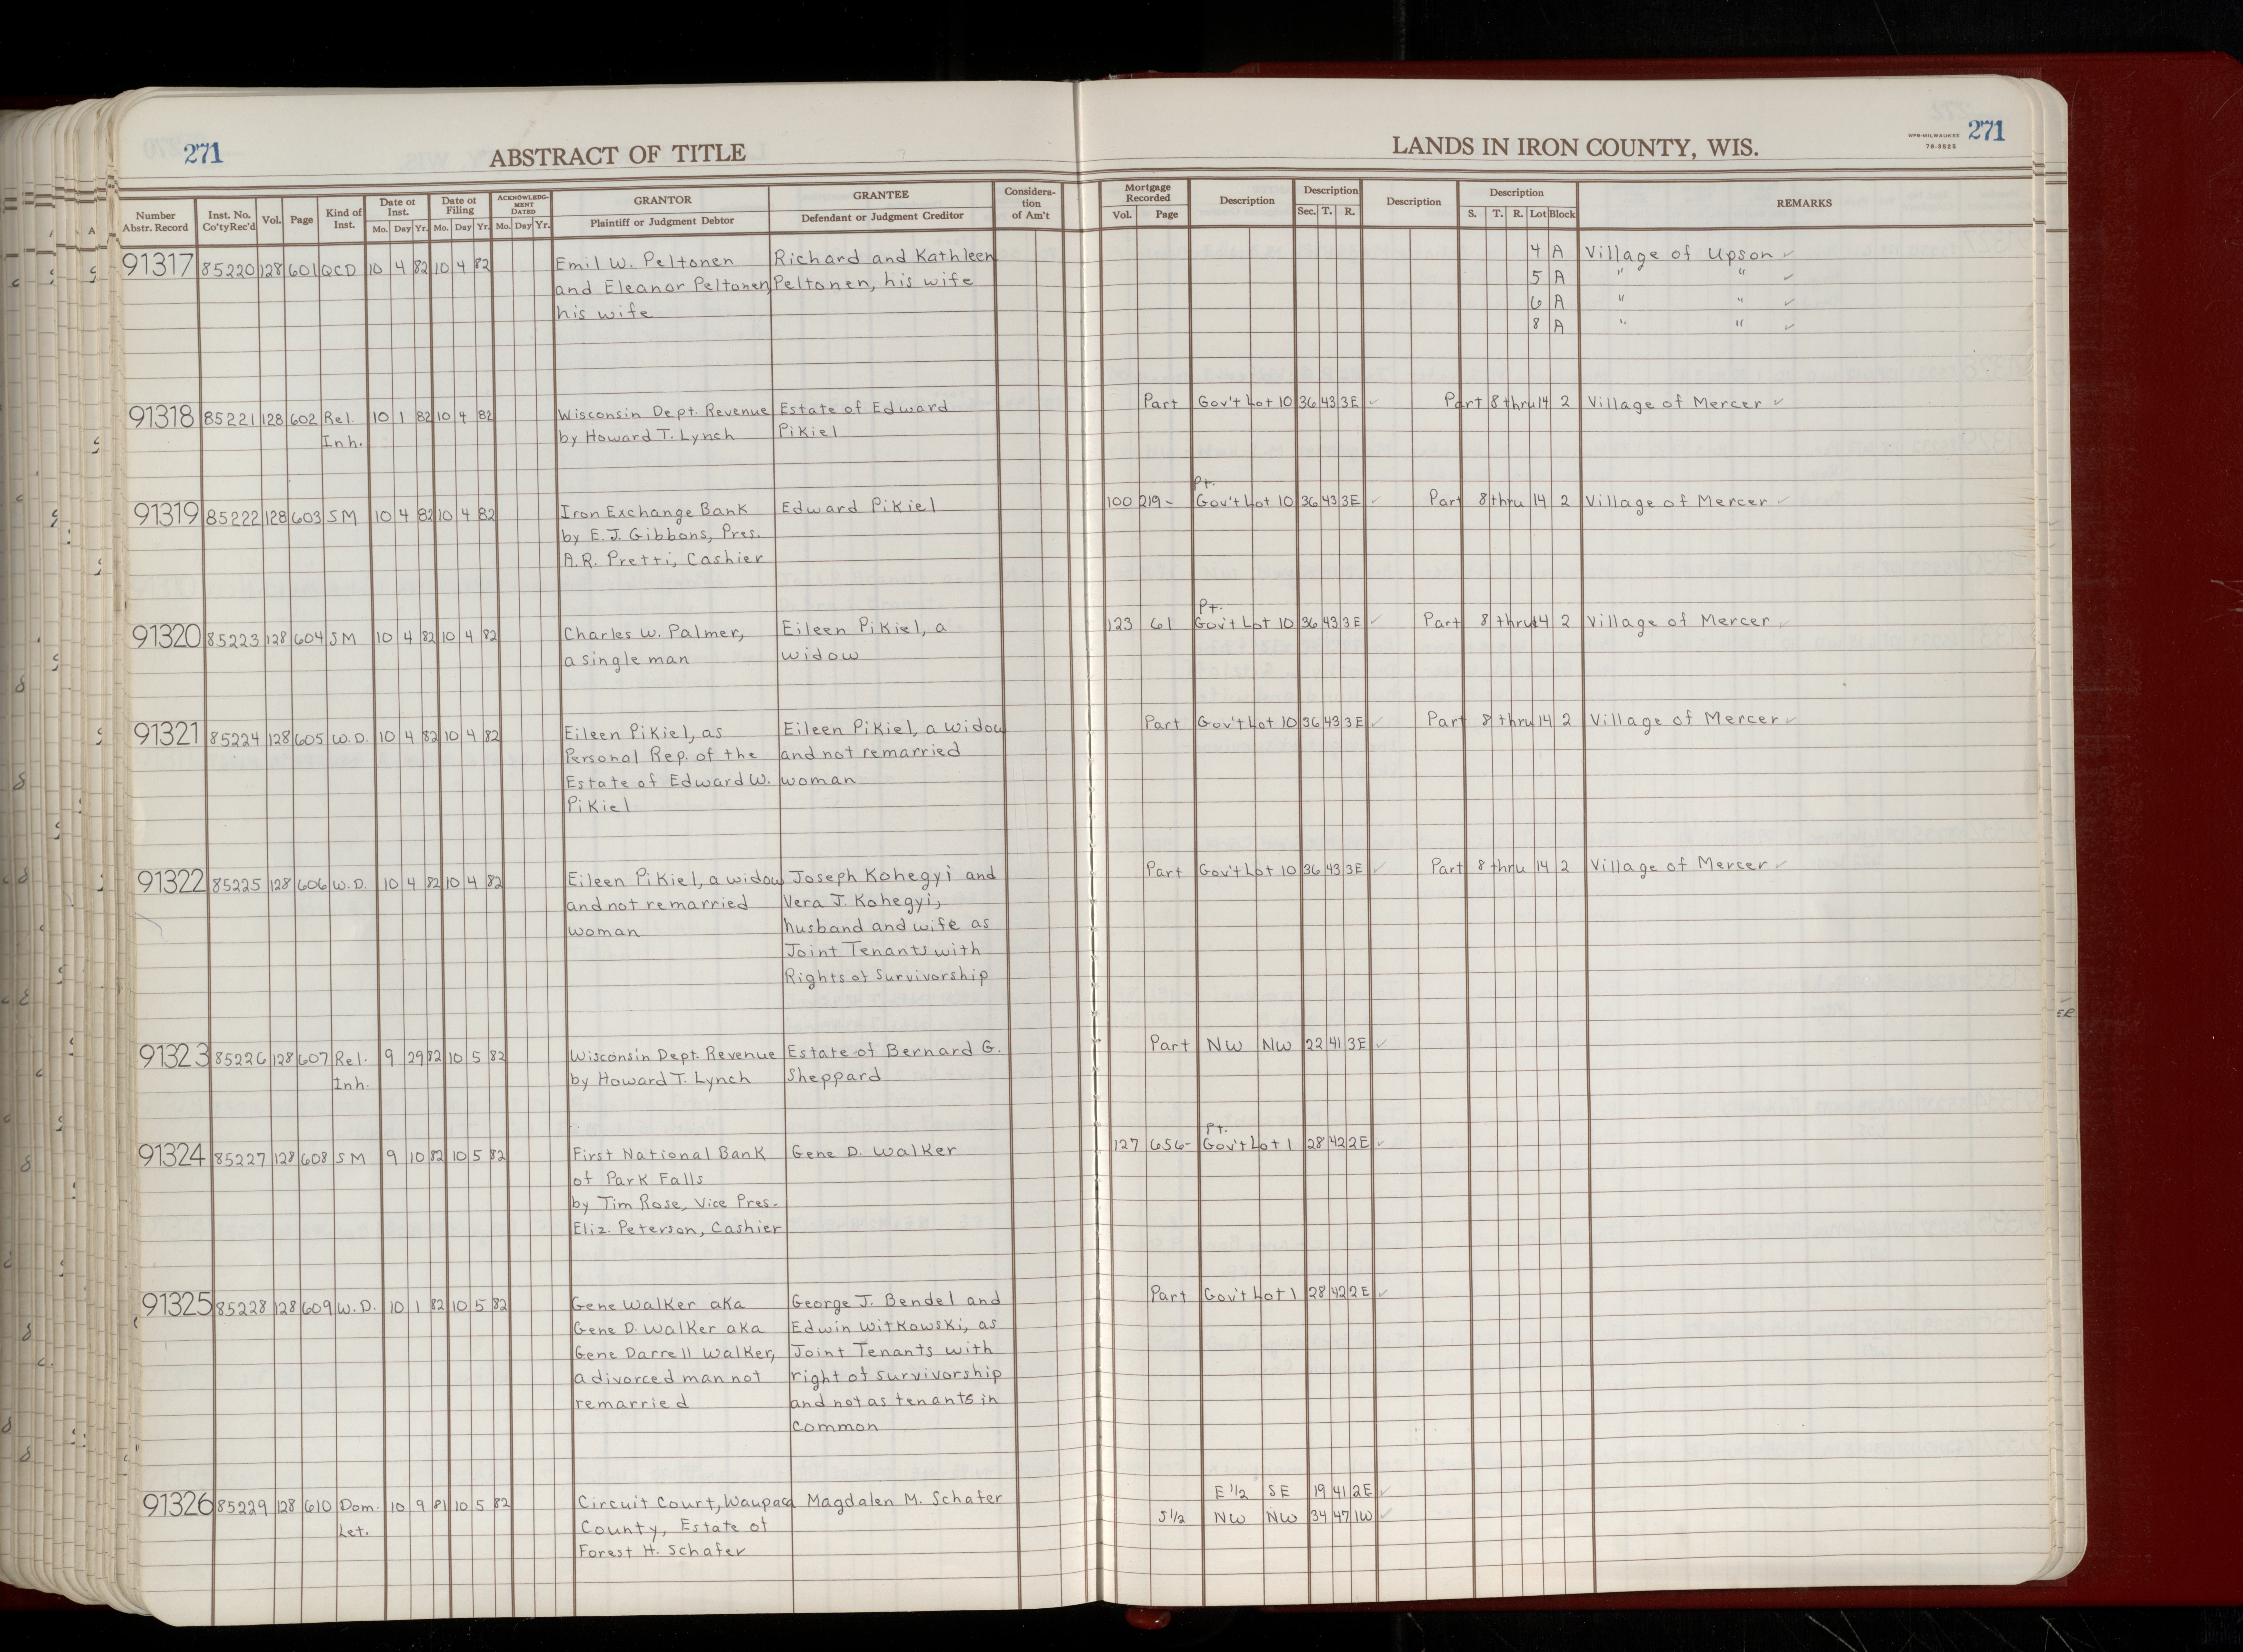 271 ABSTRACT OF TITLE
LANDS IN IRON COUNTY, WIS. WPB-MILWAUKEE 271
78-3525
Number Abstr. Record
Inst. No. Co'ty Rec'd
Vol.
Page
Kind of Inst.
Date of Inst. Mo. Day Yr.
Date of Filing Mo. Day Yr.
ACKNOWLEDGMENT DATED Mo. Day Yr.
GRANTOR Plaintiff or Judgment Debtor
GRANTEE Defendant or Judgment Creditor
Consideration of Am't
Mortgage Recorded Vol. Page
Description
Description Sec. T. R.
Description
Description S. T. R. Lot Block
REMARKS
91317 85220 128 601 QCD 10 4 82 10 4 82 Emil W. Peltonen Richard and Kathleen 4 A Village of Upson ✓
and Eleanor Peltonen, Peltonen, his wife 5 A " " ✓
his wife 6 A " " ✓
8 A " " ✓
91318 85221 128 602 Rel. 10 1 82 10 4 82 Wisconsin Dept. Revenue Estate of Edward Part Gov't Lot 10 36 43 3E ✓ Part 8 thru 14 2 Village of Mercer ✓
Inh. by Howard T. Lynch Pikiel
Pt.
91319 85222 128 603 SM 10 4 82 10 4 82 Iron Exchange Bank Edward Pikiel 100 219- Gov't Lot 10 36 43 3E ✓ Part 8 thru 14 2 Village of Mercer ✓
by E.J. Gibbons, Pres.
A.R. Pretti, Cashier
Pt.
91320 85223 128 604 SM 10 4 82 10 4 82 Charles W. Palmer, Eileen Pikiel, a 123 61 Gov't Lot 10 36 43 3E ✓ Part 8 thru 14 2 Village of Mercer ✓
a single man widow
91321 85224 128 605 W.D. 10 4 82 10 4 82 Eileen Pikiel, as Eileen Pikiel, a widow Part Gov't Lot 10 36 43 3E ✓ Part 8 thru 14 2 Village of Mercer ✓
Personal Rep. of the and not remarried
Estate of Edward W. woman
Pikiel
91322 85225 128 606 W.D. 10 4 82 10 4 82 Eileen Pikiel, a widow Joseph Kohegyi and Part Gov't Lot 10 36 43 3E ✓ Part 8 thru 14 2 Village of Mercer ✓
and not remarried Vera J. Kohegyi,
woman husband and wife as
Joint Tenants with
Rights of Survivorship
91323 85226 128 607 Rel. 9 29 82 10 5 82 Wisconsin Dept. Revenue Estate of Bernard G. Part NW NW 22 41 3E ✓
Inh. by Howard T. Lynch Sheppard
Pt.
91324 85227 128 608 SM 9 10 82 10 5 82 First National Bank Gene D. Walker 127 656- Gov't Lot 1 28 42 2E ✓
of Park Falls
by Tim Rose, Vice Pres.
Eliz. Peterson, Cashier
91325 85228 128 609 W.D. 10 1 82 10 5 82 Gene Walker aka George J. Bendel and Part Gov't Lot 1 28 42 2E ✓
Gene D. Walker aka Edwin Witkowski, as
Gene Darrell Walker, Joint Tenants with
a divorced man not right of survivorship
remarried and not as tenants in
common
E 1/2 SE 19 41 2E ✓
91326 85229 128 610 Dom. 10 9 81 10 5 82 Circuit Court, Waupaca Magdalen M. Schafer
S 1/2 NW NW 34 47 1W ✓
Let. County, Estate of
Forest H. Schafer